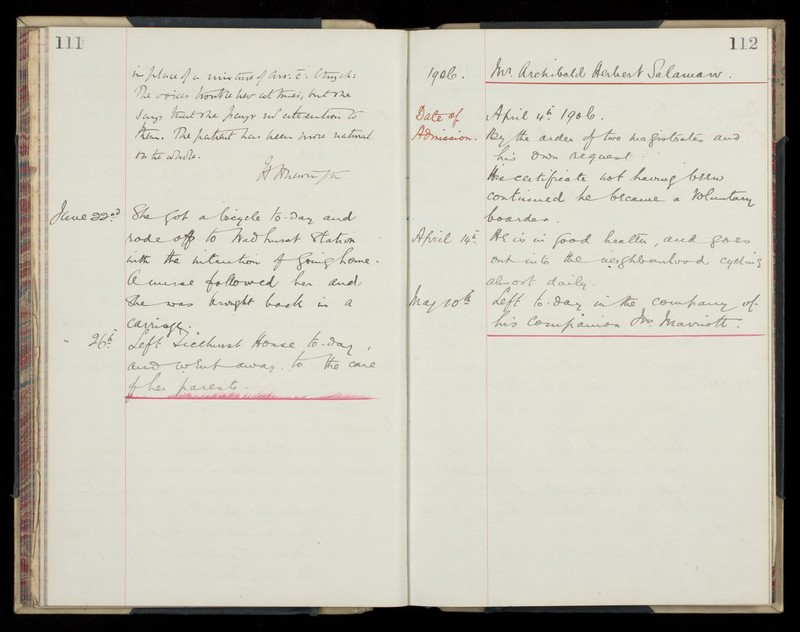 111
in place of a mixture of Ars: c̄ Strych:
The voices trouble her at times, but she
says that she pays no attention to
them. The patient has been more natural
on the whole.
June 22nd She got a bicycle to-day and
rode off to Wadhurst Station
with the intention of going home.
A nurse followed her and
she was brought back in a
carriage.
" 26th Left Ticehurst House to-day,
and went away to the care
of her parents.
112
1906. Mr. Archibald Herbert Salaman.
Date of April 4th 1906.
Admission. By the order of two magistrates and
his own request
His certificate not having been
continued he became a Voluntary
boarder.
April 14th He is in good health, and goes
out into the neighbourhood cycling
almost daily.
May 10th Left to-day in the company of
his companion Mr. Marriott.